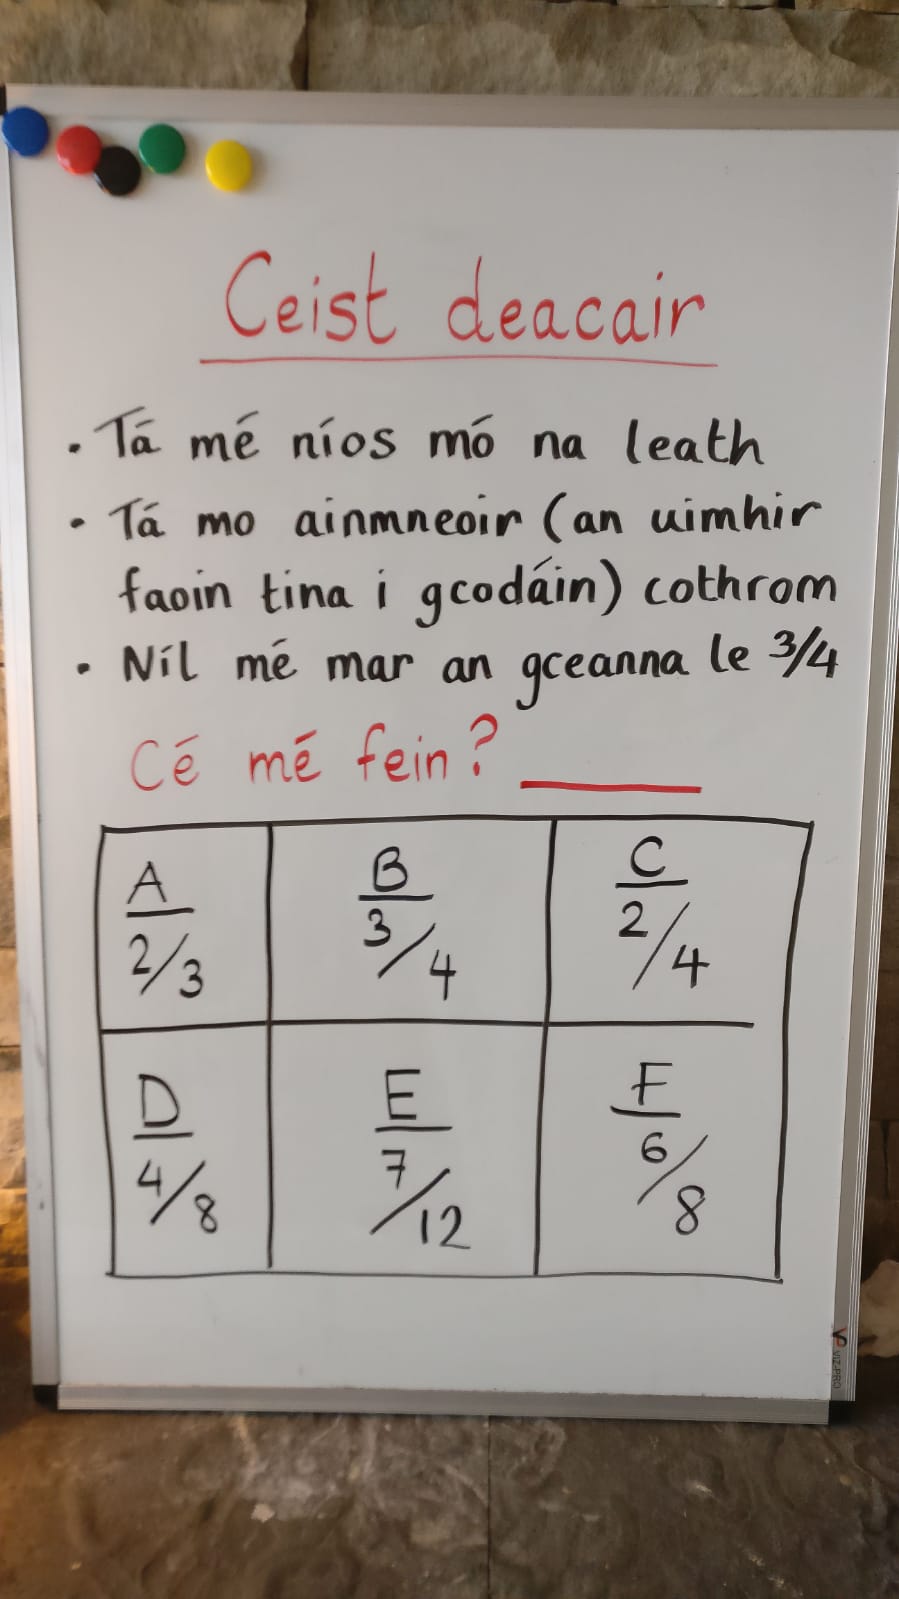 Ceist deacair
• Tá mé níos mó na leath
• Tá mo ainmneoir (an uimhir
faoin tina i gcodáin) cothrom
• Níl mé mar an gceanna le 3/4
Cé mé fein? ____
A B C
2/3 3/4 2/4
D E F
4/8 7/12 6/8
VIZ-PRO